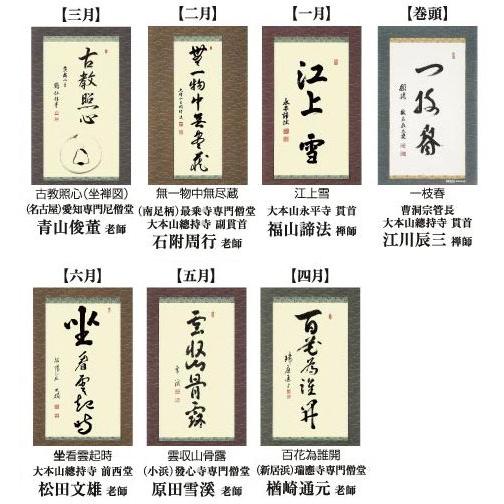 【巻頭】
一枝春
一枝春
曹洞宗管長
大本山總持寺 貫首
江川辰三 禅師
【一月】
江上雪
江上雪
大本山永平寺 貫首
福山諦法 禅師
【二月】
無一物中無尽蔵
無一物中無尽蔵
(南足柄)最乗寺専門僧堂
大本山總持寺 副貫首
石附周行 老師
【三月】
古教照心
古教照心(坐禅図)
(名古屋)愛知専門尼僧堂
青山俊董 老師
【四月】
百花為誰開
百花為誰開
(新居浜)瑞應寺専門僧堂
楢崎通元 老師
【五月】
雲収山骨露
雲収山骨露
(小浜)發心寺専門僧堂
原田雪溪 老師
【六月】
坐看雲起時
坐看雲起時
大本山總持寺 前西堂
松田文雄 老師